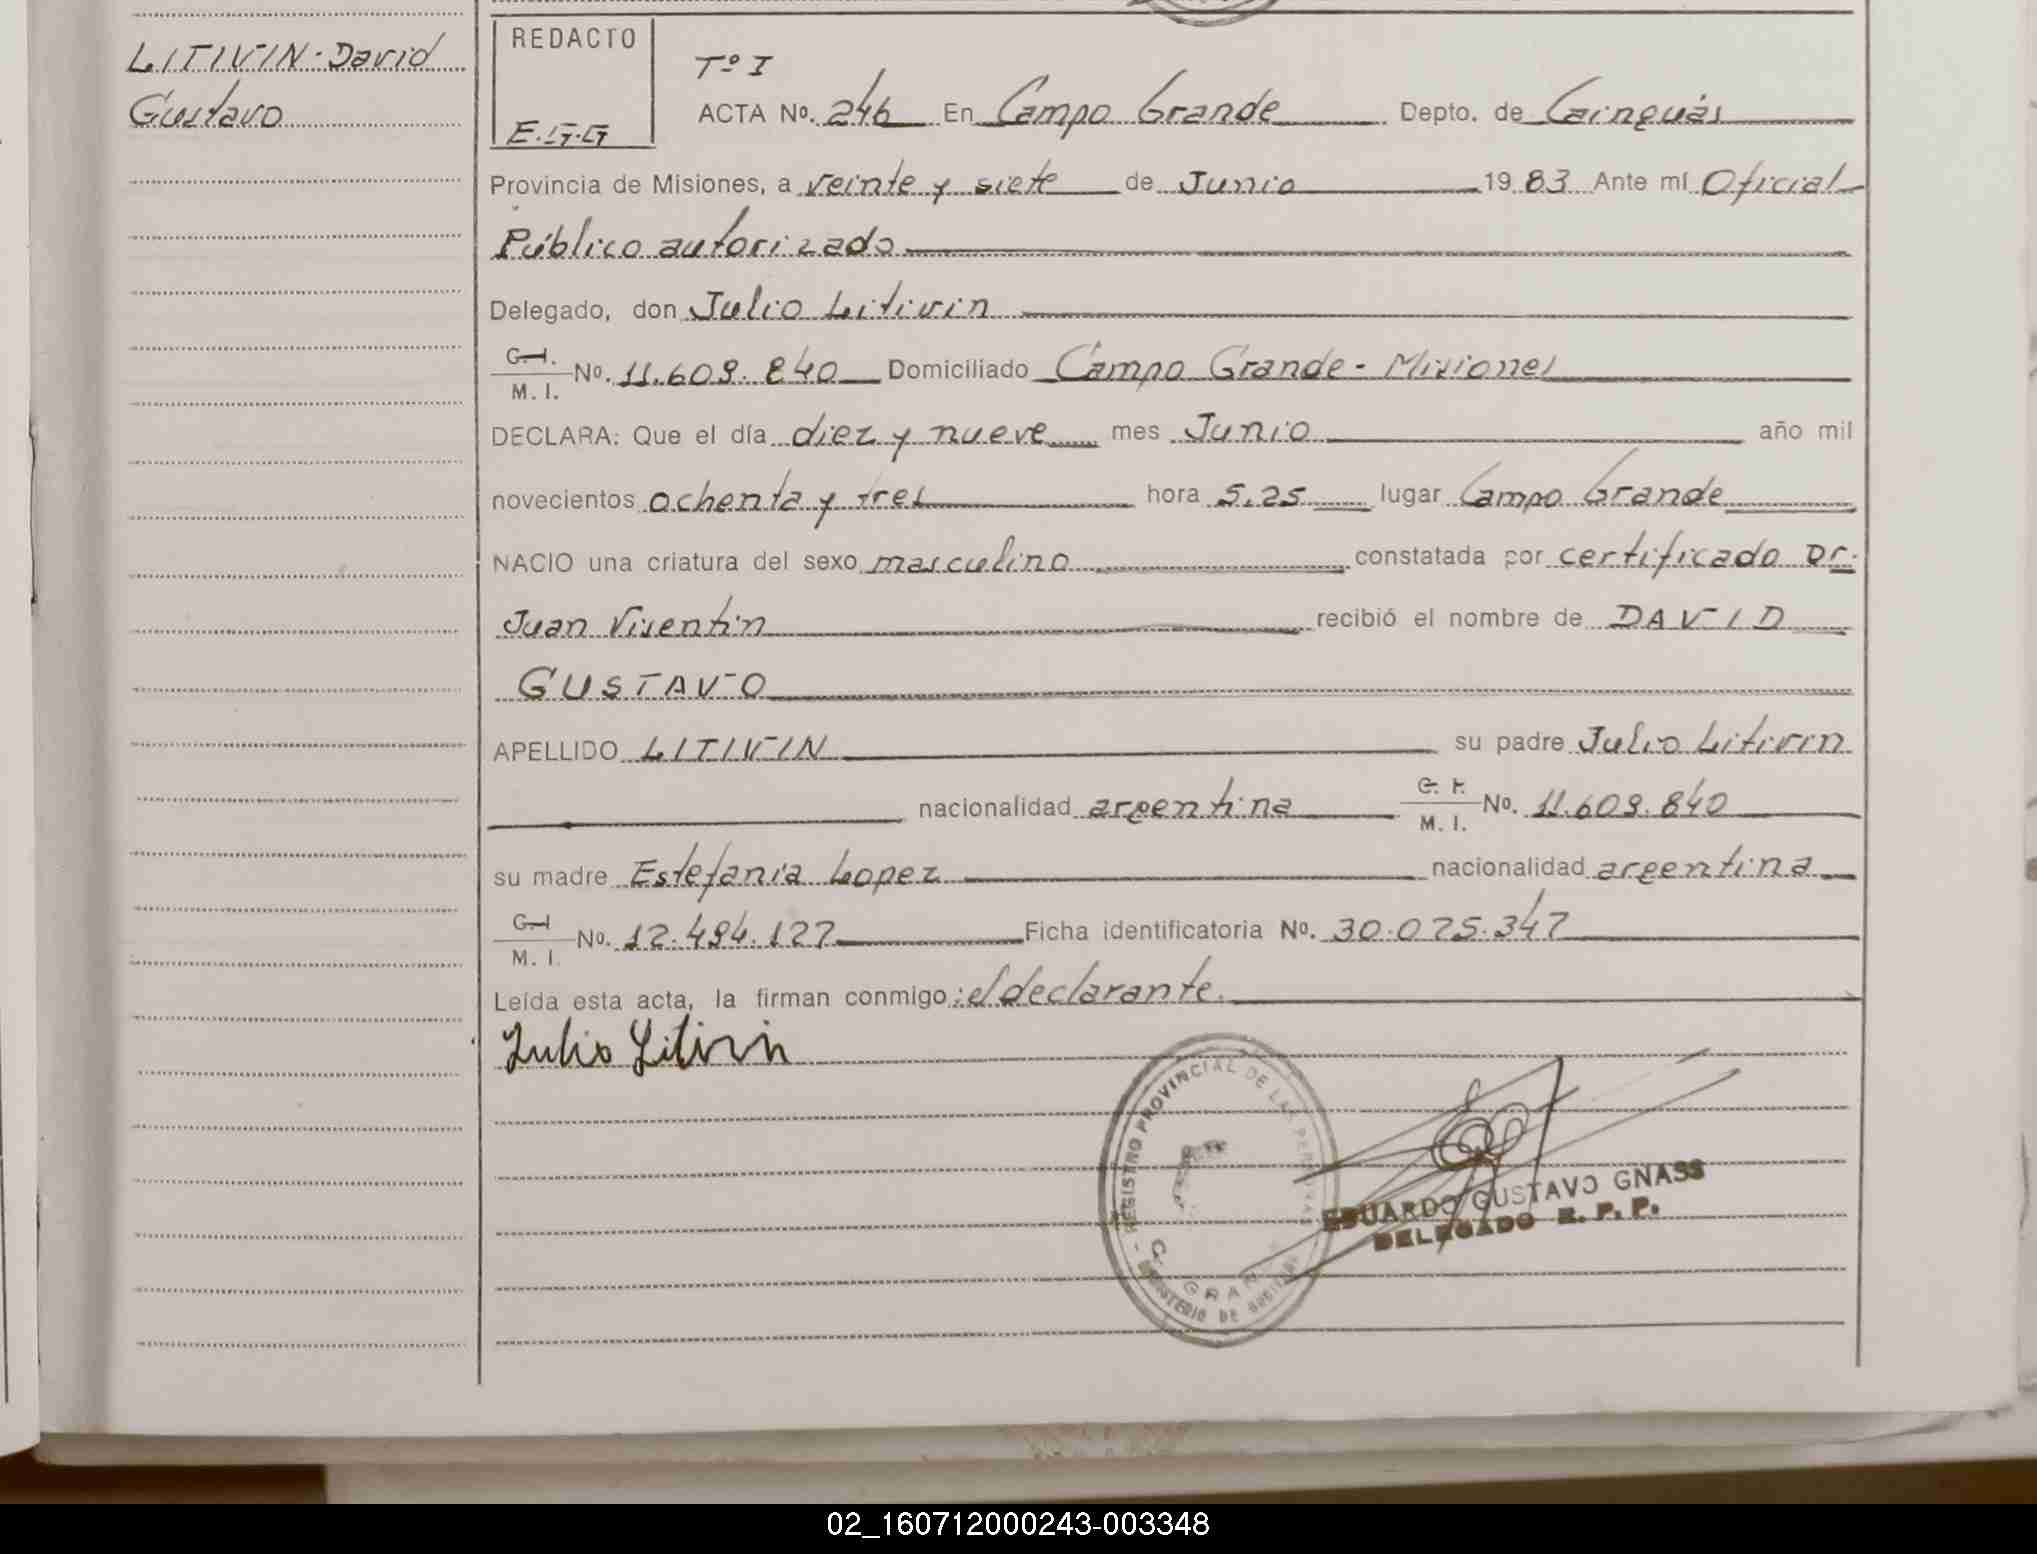 LITIVIN - David
Gustavo
REDACTO
E.G.G
Tº I
ACTA Nº. 246 En Campo Grande Depto. de Cainguás
Provincia de Misiones, a veinte y siete de Junio 1983 Ante mí Oficial
Público autorizado
Delegado, don Julio Litivin
C.I.
M. I. No. 11.609.840 Domiciliado Campo Grande - Misiones
DECLARA: Que el día diez y nueve mes Junio año mil
novecientos ochenta y tres hora 5.25 lugar Campo Grande
NACIO una criatura del sexo masculino constatada por certificado Dr.
Juan Visentin recibió el nombre de DAVID
GUSTAVO
APELLIDO LITIVIN su padre Julio Litivin
nacionalidad argentina C. I.
M. I. No. 11.609.840
su madre Estefania Lopez nacionalidad argentina
C.I
M. I. No. 12.494.127 Ficha identificatoria No. 30.075.347
Leída esta acta, la firman conmigo: el declarante.
Julio Litivin
REGISTRO PROVINCIAL DE LAS PERSONAS
C. GRAN
MINISTERIO DE
EDUARDO GUSTAVO GNASS
DELEGADO R. P. P.
02_160712000243-003348